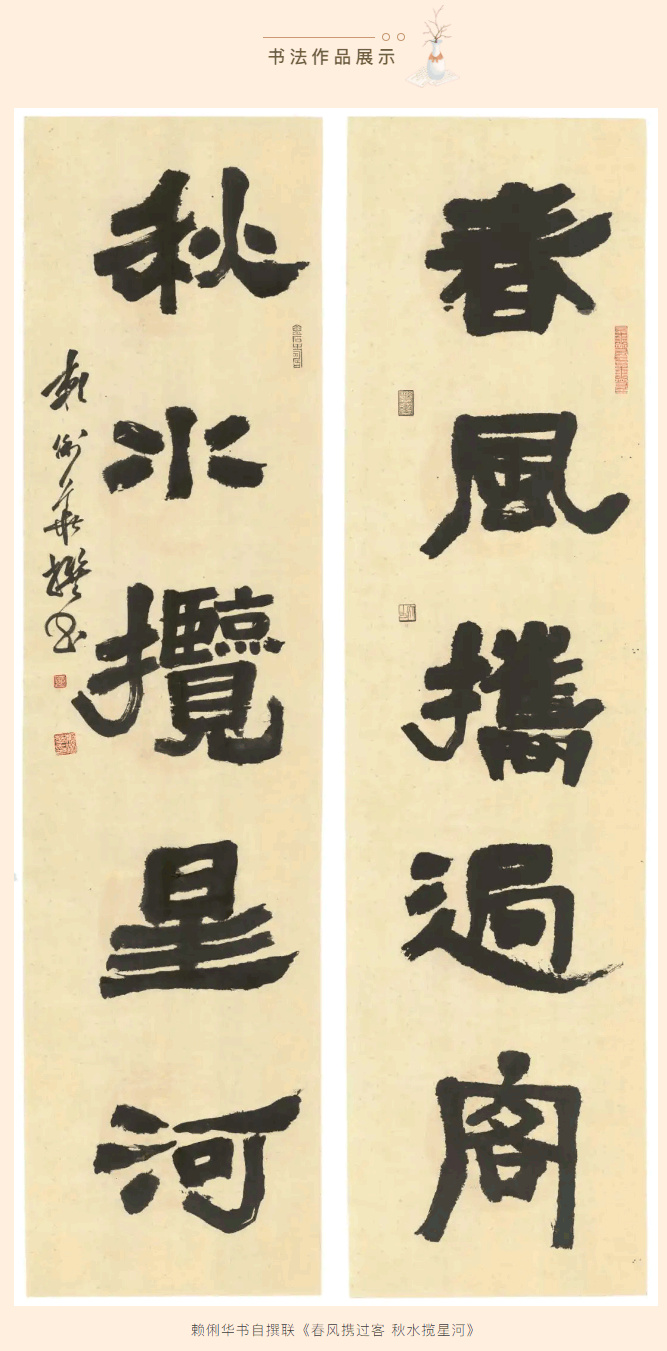 书法作品展示
春風攜過客
秋水攬星河
赖俐华撰书
赖俐华书自撰联《春风携过客 秋水揽星河》